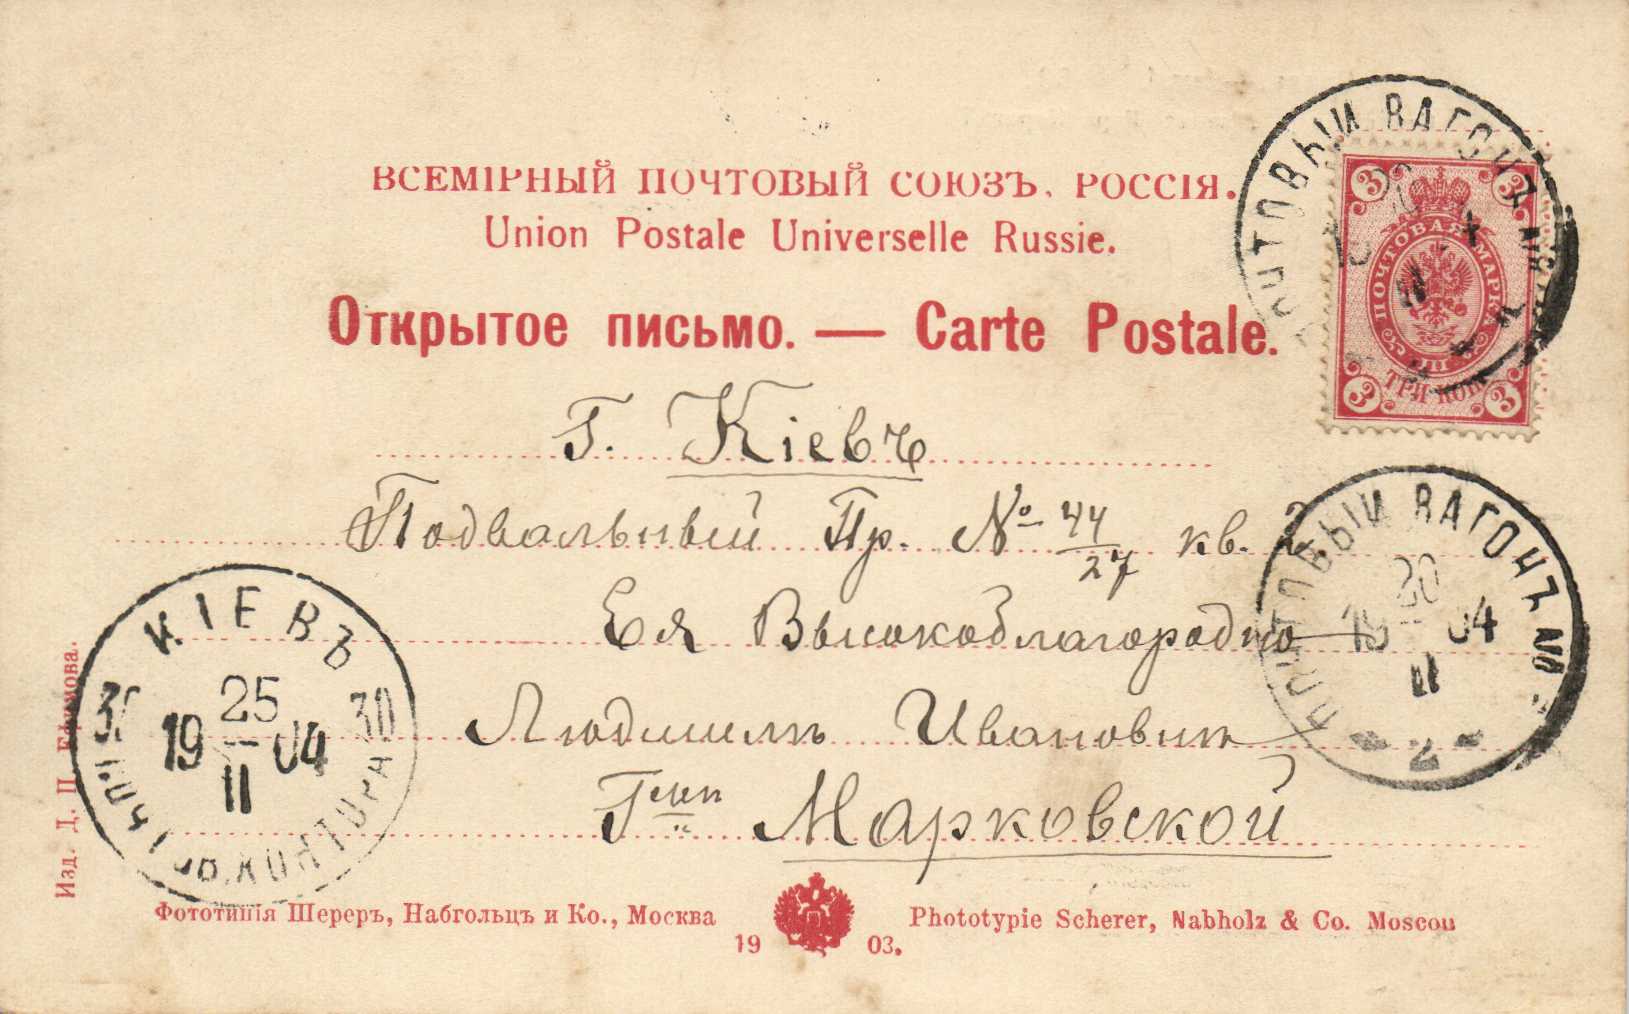 ВСЕМІРНЫЙ ПОЧТОВЫЙ СОЮЗЪ. РОССІЯ.
Union Postale Universelle Russie.
Открытое письмо. — Carte Postale.
ПОЧТОВЫЙ ВАГОНЪ
3 3
ПОЧТОВАЯ МАРКА
ТРИ КОП
3 3
Г. Кіевъ
Подвальный Пр. № 44/27 кв. 2
Ея Высокоблагородію
Людмилѣ Ивановнѣ
Гжѣ Марковской
ПОЧТОВЫЙ ВАГОНЪ №
20
19 04
II
2
КІЕВЪ
30 30
25
19 04
II
КОНТОРА
Изд. Д. П. Ефимова.
Фототипія Шереръ, Набгольцъ и Ко., Москва
1903.
Phototypie Scherer, Nabholz & Co. Moscou